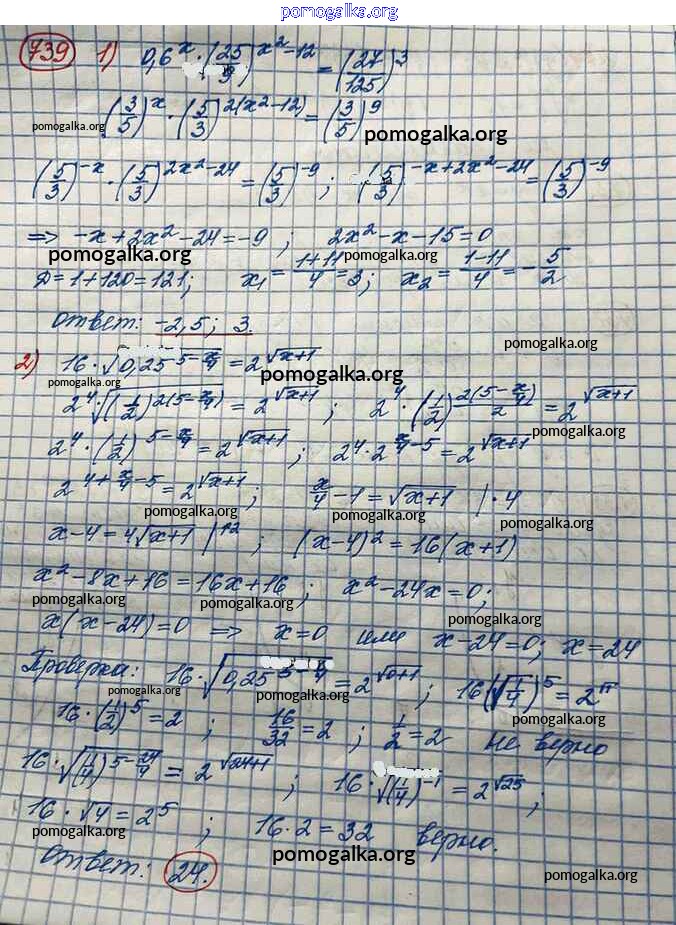 pomogalka.org
739 1) 0,6^x · (25/9)^(x²-12) = (27/125)^3
(3/5)^x · (5/3)^(2(x²-12)) = (3/5)^9
pomogalka.org pomogalka.org
(5/3)^(-x) · (5/3)^(2x²-24) = (5/3)^(-9) ; (5/3)^(-x+2x²-24) = (5/3)^(-9)
=> -x+2x²-24=-9 ; 2x²-x-15=0
pomogalka.org pomogalka.org
D=1+120=121; x₁ = (1+11)/4 = 3; x₂ = (1-11)/4 = -5/2
ответ: -2,5; 3.
2) 16·√(0,25^(5-x/4)) = 2^√(x+1)
pomogalka.org
2^4·√((1/2)^(2(5-x/4))) = 2^√(x+1) ; 2^4·(1/2)^(2(5-x/4)/2) = 2^√(x+1)
pomogalka.org
2^4·(1/2)^(5-x/4) = 2^√(x+1) ; 2^4·2^(x/4-5) = 2^√(x+1)
2^(4+x/4-5) = 2^√(x+1) ; x/4-1=√(x+1) |·4
pomogalka.org pomogalka.org pomogalka.org
x-4=4√(x+1) |↑2 ; (x-4)²=16(x+1)
x²-8x+16=16x+16 ; x²-24x=0;
pomogalka.org pomogalka.org pomogalka.org
x(x-24)=0 => x=0 или x-24=0; x=24
Проверка: 16·√(0,25^(5-0/4)) = 2^√(0+1) ; 16(√(1/4))^5 = 2^√1
pomogalka.org pomogalka.org
16·(1/2)^5=2 ; 16/32=2 ; 1/2=2 не верно
pomogalka.org
16·√((1/4)^(5-24/4)) = 2^√(24+1) ; 16·√((1/4)^(-1)) = 2^√25 ;
16·√4=2^5 ; 16·2=32 верно.
pomogalka.org
ответ: 24.
pomogalka.org pomogalka.org